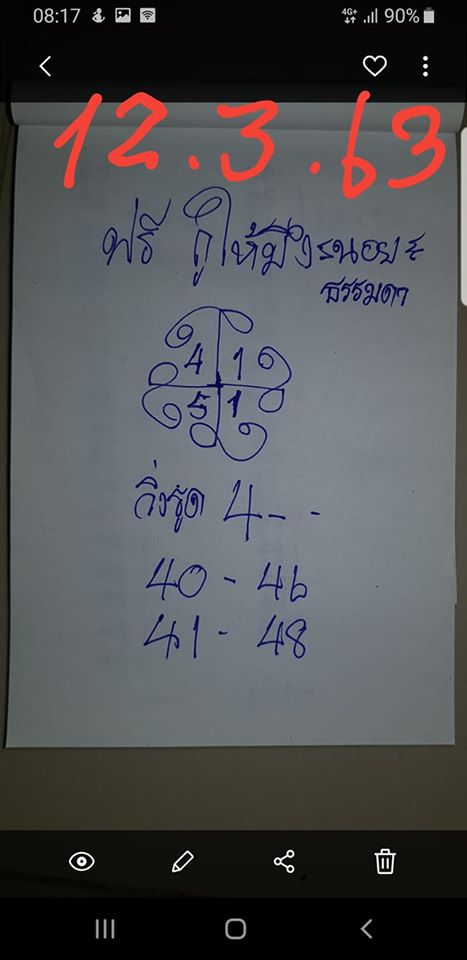 08:17
4G+ 90%
12.3.63
ฟรี กูให้มึง
ธรรมดา
4 1
5 1
วิ่งรูด 4--
40 - 46
41 - 48